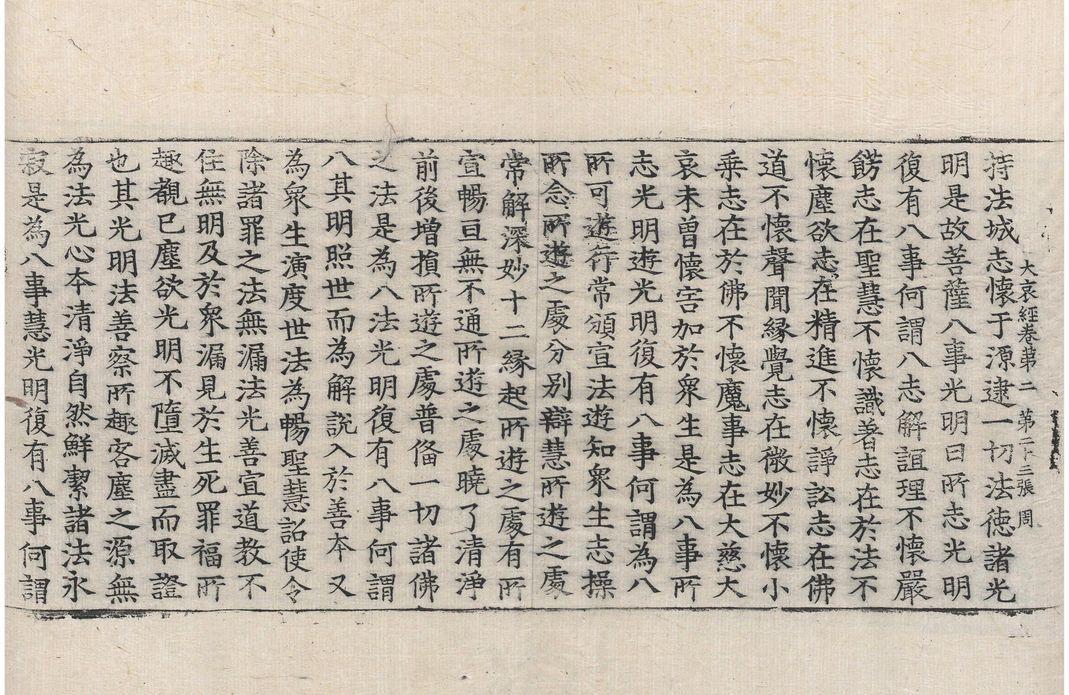 大哀經卷第二 第二十三張 周
持法城志懷于源逮一切法德諸光
明是故菩薩八事光明曰所志光明
復有八事何謂八志解誼理不懷嚴
餝志在聖慧不懷識著志在於法不
懷塵欲志在精進不懷諍訟志在佛
道不懷聲聞緣覺志在微妙不懷小
乘志在於佛不懷魔事志在大慈大
哀未曾懷害加於衆生是為八事所
志光明遊光明復有八事何謂為八
所可遊行常頒宣法遊知衆生志操
所念所遊之處分別辯慧所遊之處
常解深妙十二緣起所遊之處有所
宣暢亘無不通所遊之處曉了清淨
前後增損所遊之處普俻一切諸佛
之法是為八法光明復有八事何謂
八其明照世而為解說入於善本又
為衆生演度世法為暢聖慧詔使令
除諸罪之法無漏法光善宣道教不
住無明及於衆漏見於生死罪福所
趣覩已塵欲光明不墮滅盡而取證
也其光明法善察所趣客塵之源無
為法光心本清淨自然鮮潔諸法永
寂是為八事慧光明復有八事何謂